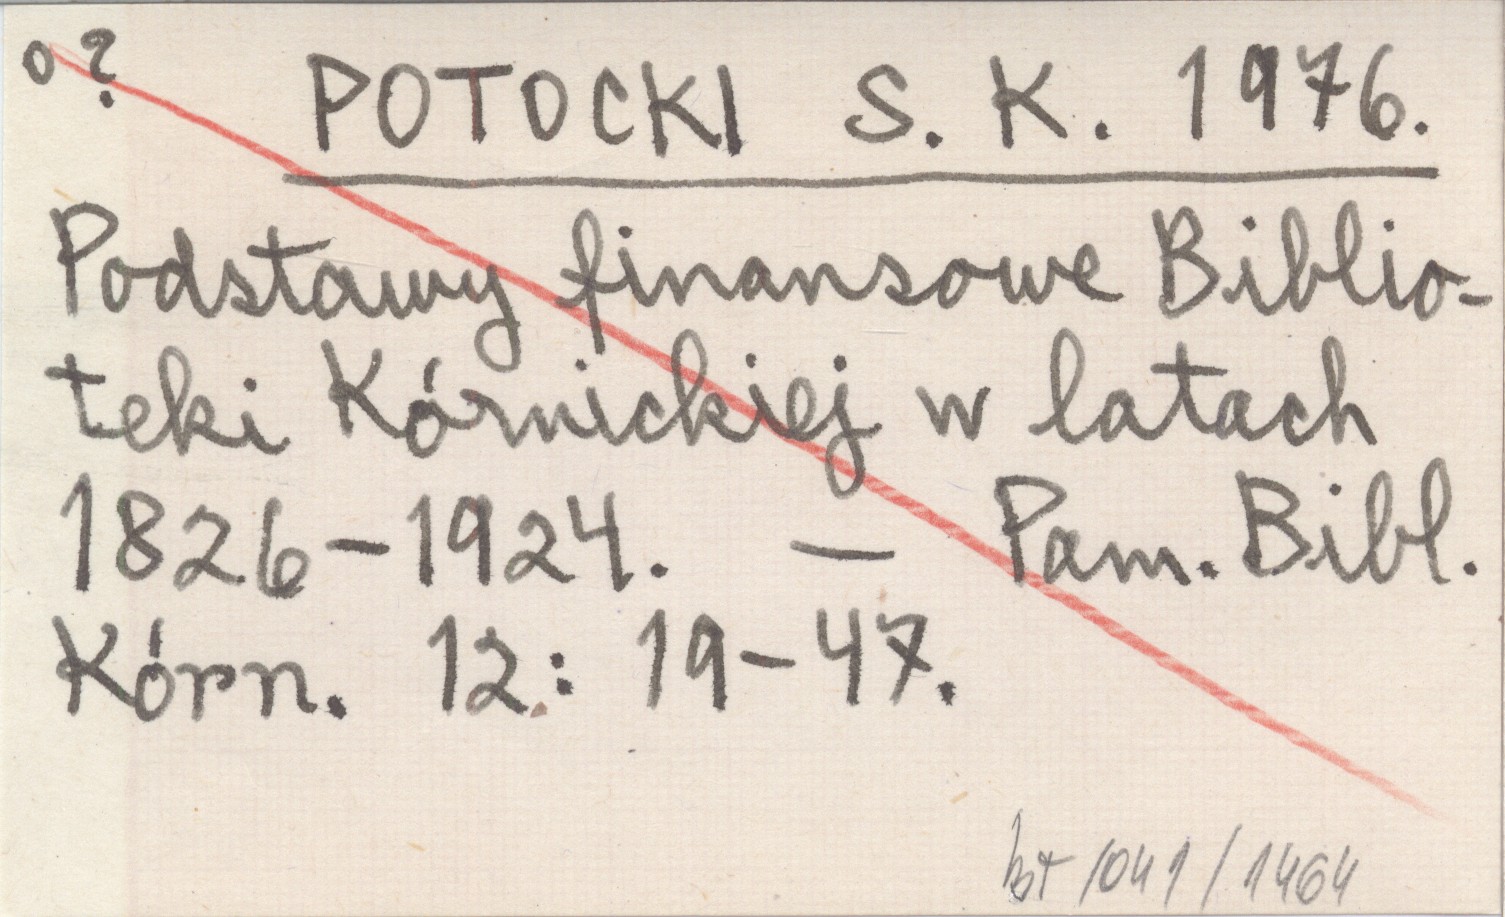 o ?
POTOCKI S. K. 1976.
Podstawy finansowe Biblio-
teki Kórnickiej w latach
1826-1924. — Pam. Bibl.
Kórn. 12: 19-47.
/041/1464